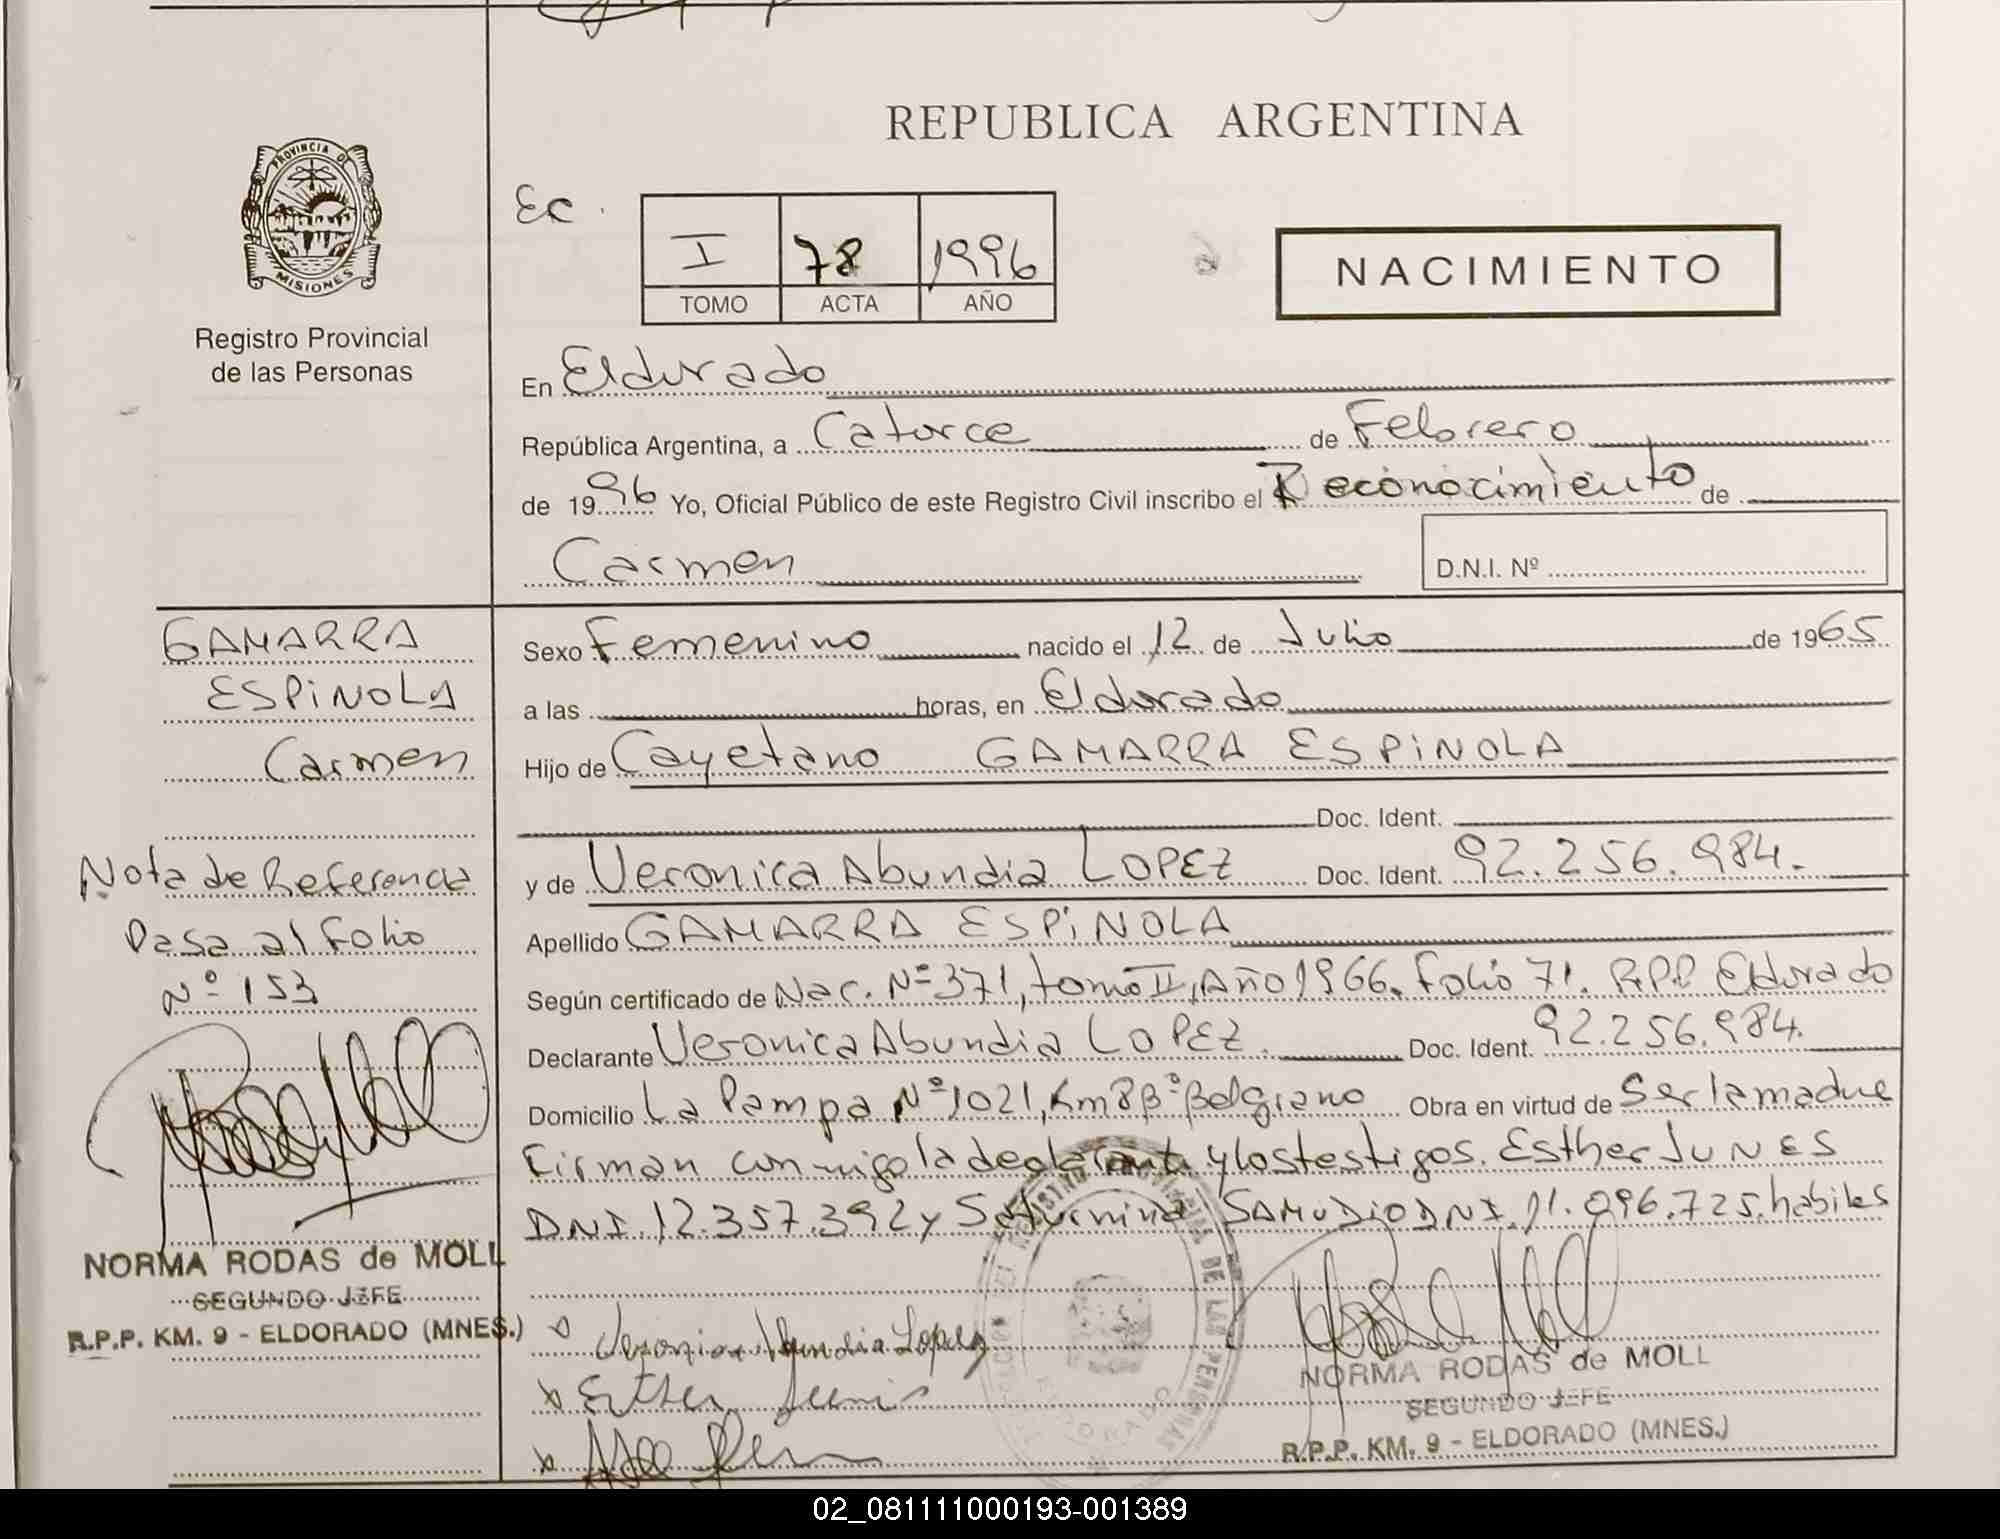 REPUBLICA ARGENTINA
PROVINCIA DE
MISIONES
Registro Provincial
de las Personas
Ec.
I 78 1996
TOMO ACTA AÑO
NACIMIENTO
En Eldorado
República Argentina, a Catorce de Febrero
de 1996 Yo, Oficial Público de este Registro Civil inscribo el Reconocimiento de
Carmen D.N.I. Nº
GAMARRA
ESPiNOLA
Carmen
Nota de Referencia
Pasa al folio
Nº 153
NORMA RODAS de MOLL
SEGUNDO JEFE
R.P.P. KM. 9 - ELDORADO (MNES.)
Sexo Femenino nacido el 12 de Julio de 1965
a las horas, en Eldorado
Hijo de Cayetano GAMARRA ESPiNOLA
Doc. Ident.
y de Veronica Abundia LOPEZ Doc. Ident. 92.256.984.
Apellido GAMARRA ESPiNOLA
Según certificado de Nac. Nº 371, tomo II, Año 1966. Folio 71. RPP Eldorado
Declarante Veronica Abundia LOPEZ. Doc. Ident. 92.256.984.
Domicilio La Pampa Nº 1021, Km 8 Bº Belgrano Obra en virtud de Ser la madre
Firman conmigo la declarante y los testigos. Esther JUNES
DNI. 12.357.392 y Saturnina SAMUDIO DNI. 11.096.725. habiles
Veronica Abundia Lopez
Esther Junes
REGISTRO PROVINCIAL DE LAS PERSONAS
ELDORADO
NORMA RODAS de MOLL
SEGUNDO JEFE
R.P.P. KM. 9 - ELDORADO (MNES.)
02_081111000193-001389